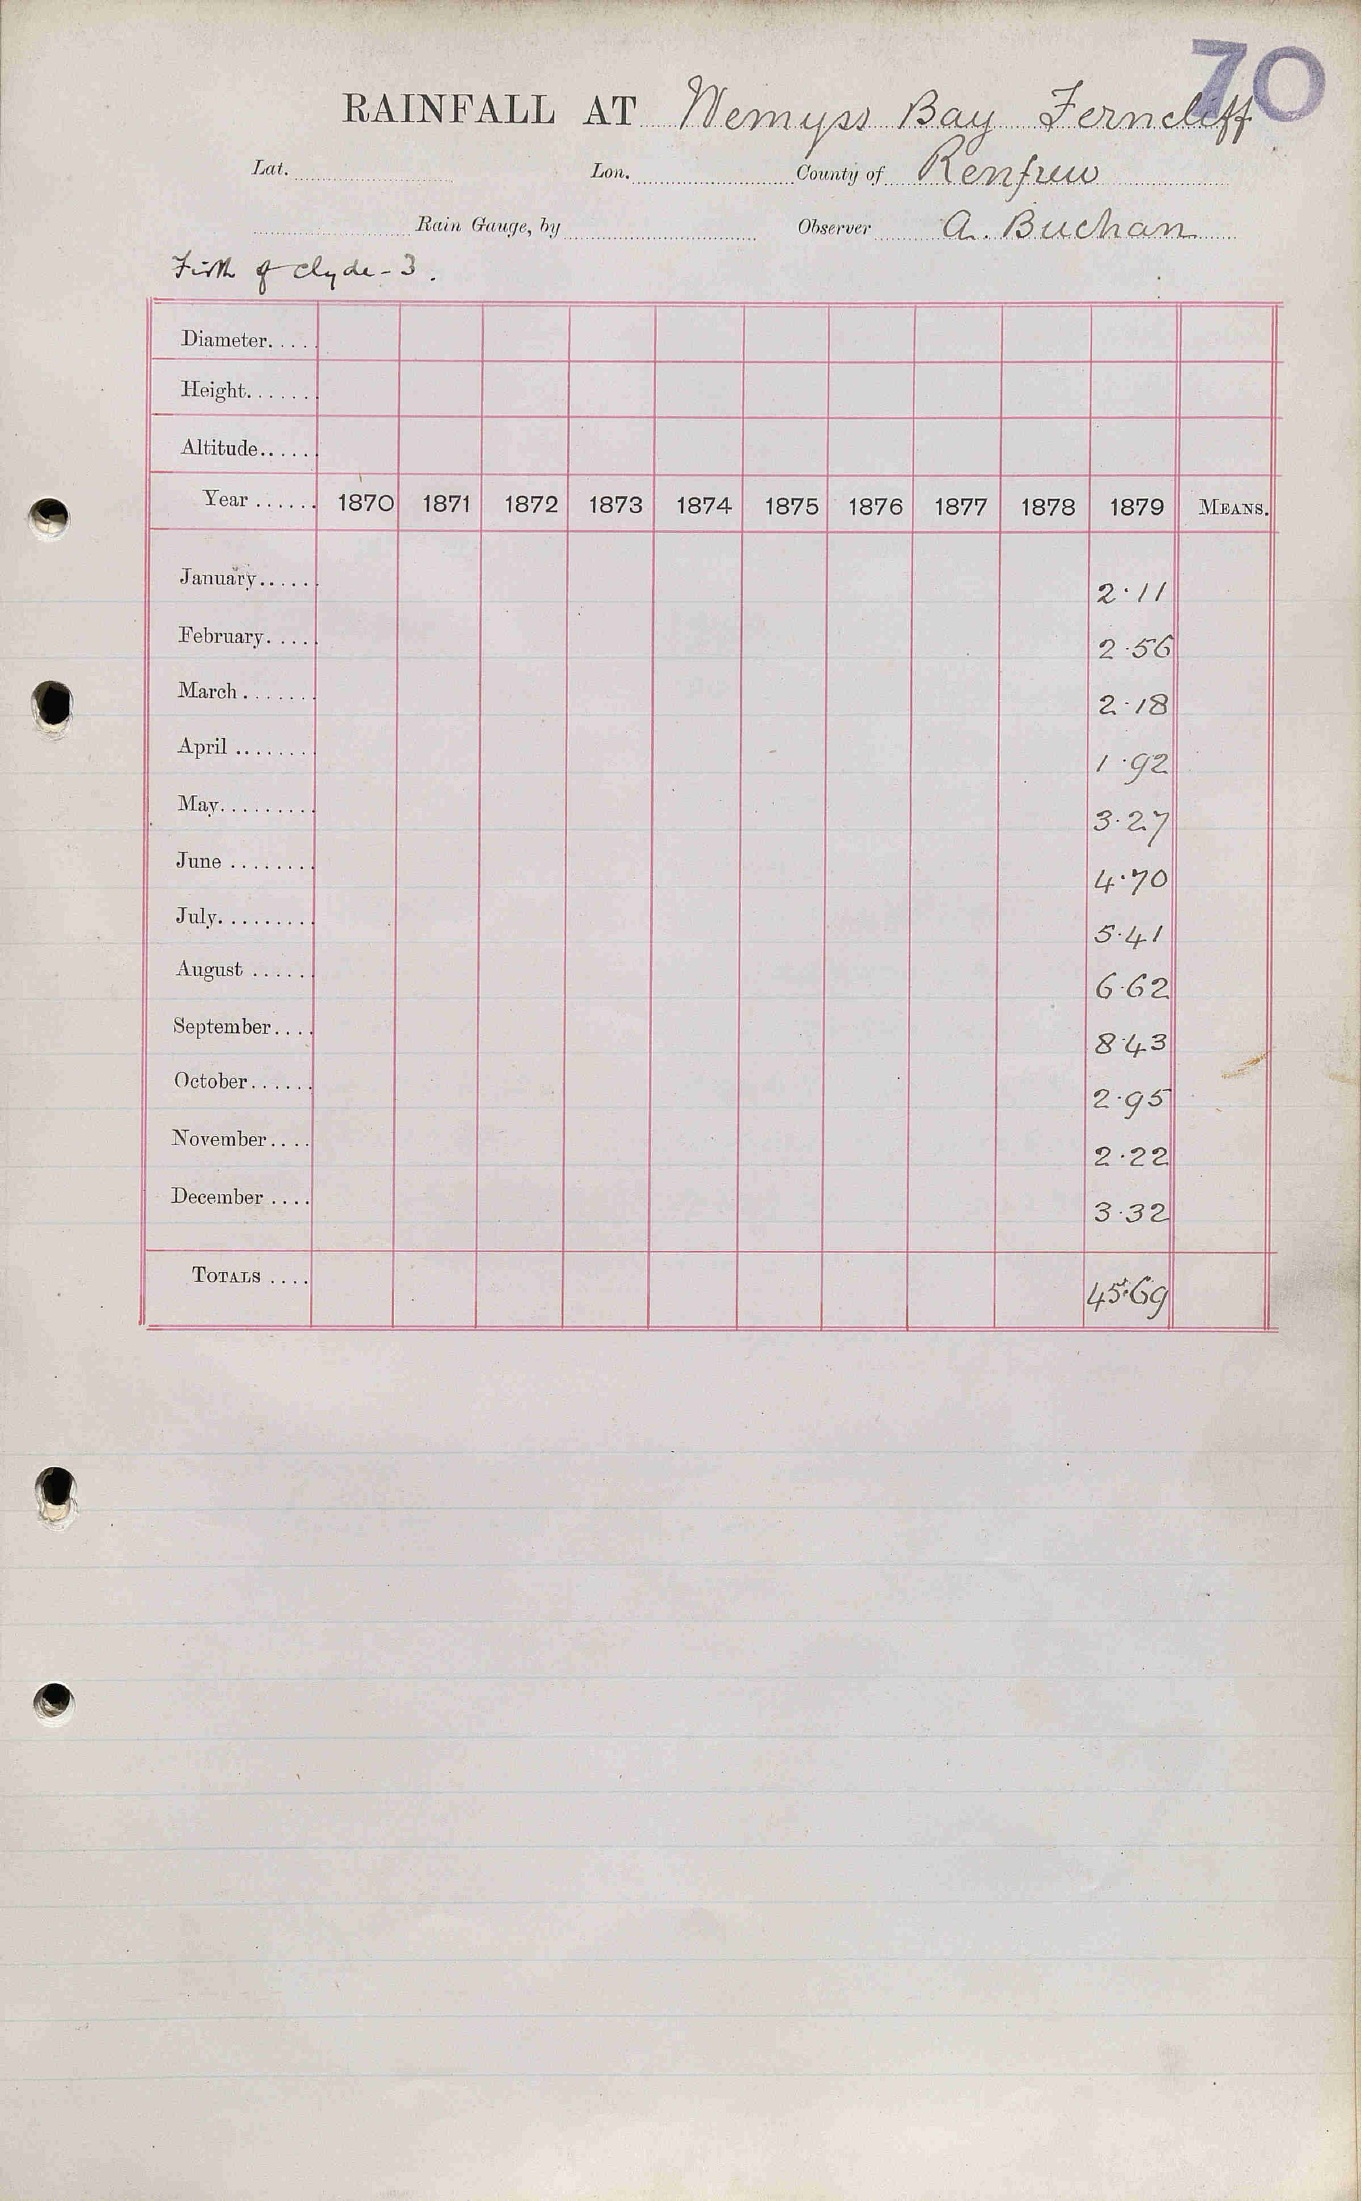 70
RAINFALL AT Wemyss Bay Ferncliff
Lat. Lon. County of Renfrew
Rain Gauge, by Observer A. Buchan
Firth of Clyde - 3.
Diameter.....
Height.......
Altitude.....
Year ...... 1870 1871 1872 1873 1874 1875 1876 1877 1878 1879 MEANS.
January...... 2.11
February..... 2.56
March....... 2.18
April ........ 1.92
May......... 3.27
June ........ 4.70
July......... 5.41
August ...... 6.62
September.... 8.43
October...... 2.95
November.... 2.22
December .... 3.32
TOTALS .... 45.69